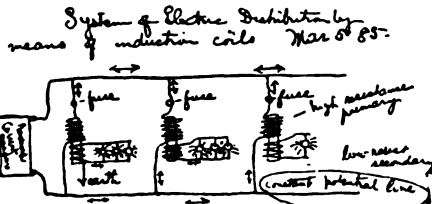 System of Electric Distribution by
means of induction coils Mar 5 85.
fuse
fuse
fuse
high resistance
primary
earth
secondary
constant potential line